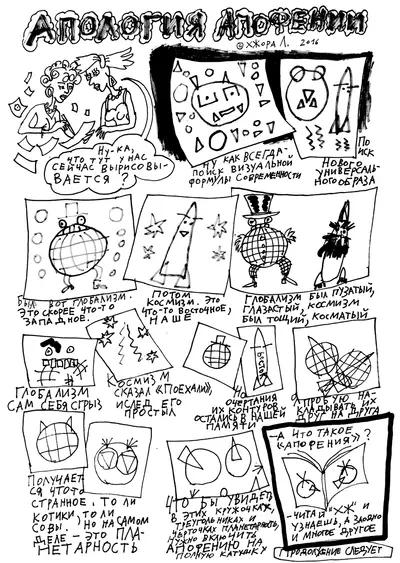 АПОЛОГИЯ АПОФЕНИИ
© ХЖОРА Л. 2016
НУ-КА,
ЧТО ТУТ У НАС
СЕЙЧАС ВЫРИСОВЫ-
ВАЕТСЯ?
НУ КАК ВСЕГДА-
ПОИСК ВИЗУАЛЬНОЙ
ФОРМУЛЫ СОВРЕМЕННОСТИ
ПО
ИСК
НОВОГО
УНИВЕРСАЛЬ-
НОГО ОБРАЗА
БЫЛ ВОТ ГЛОБАЛИЗМ.
ЭТО СКОРЕЕ ЧТО-ТО
ЗАПАДНОЕ.
ПОТОМ
КОСМИЗМ. ЭТО
ЧТО-ТО ВОСТОЧНОЕ,
НАШЕ
ГЛОБАЛИЗМ БЫЛ ПУЗАТЫЙ,
ГЛАЗАСТЫЙ, КОСМИЗМ
БЫЛ ТОЩИЙ, КОСМАТЫЙ
ГЛОБАЛИЗМ
САМ СЕБЯ СГРЫЗ
КОСМИЗМ
СКАЗАЛ «ПОЕХАЛИ»
И СЛЕД ЕГО
ПРОСТЫЛ
НО
ОЧЕРТАНИЯ
ИХ КОНТУРОВ
ОСТАЛИСЬ В НАШЕЙ
ПАМЯТИ
Я ПРОБУЮ НА-
КЛАДЫВАТЬ ИХ
ДРУГ НА ДРУГА
ПОЛУЧАЕТ
СЯ ЧТО-ТО
СТРАННОЕ, ТО ЛИ
КОТИКИ, ТО ЛИ
СОВЫ. НО НА САМОМ
ДЕЛЕ - ЭТО ПЛА-
НЕТАРНОСТЬ
ЧТО БЫ УВИДЕТЬ
В ЭТИХ КРУЖОЧКАХ,
ТРЕУГОЛЬНИКАХ И
ЧЕРТОЧКАХ ПЛАНЕТАРНОСТЬ,
НУЖНО ВКЛЮЧИТЬ
АПОФЕНИЮ НА
ПОЛНУЮ КАТУШКУ
-А ЧТО ТАКОЕ
«АПОФЕНИЯ»?
-ЧИТАЙ "ХЖ" И
УЗНАЕШЬ, А ЗАОДНО
И МНОГОЕ ДРУГОЕ
ПРОДОЛЖЕНИЕ СЛЕДУЕТ